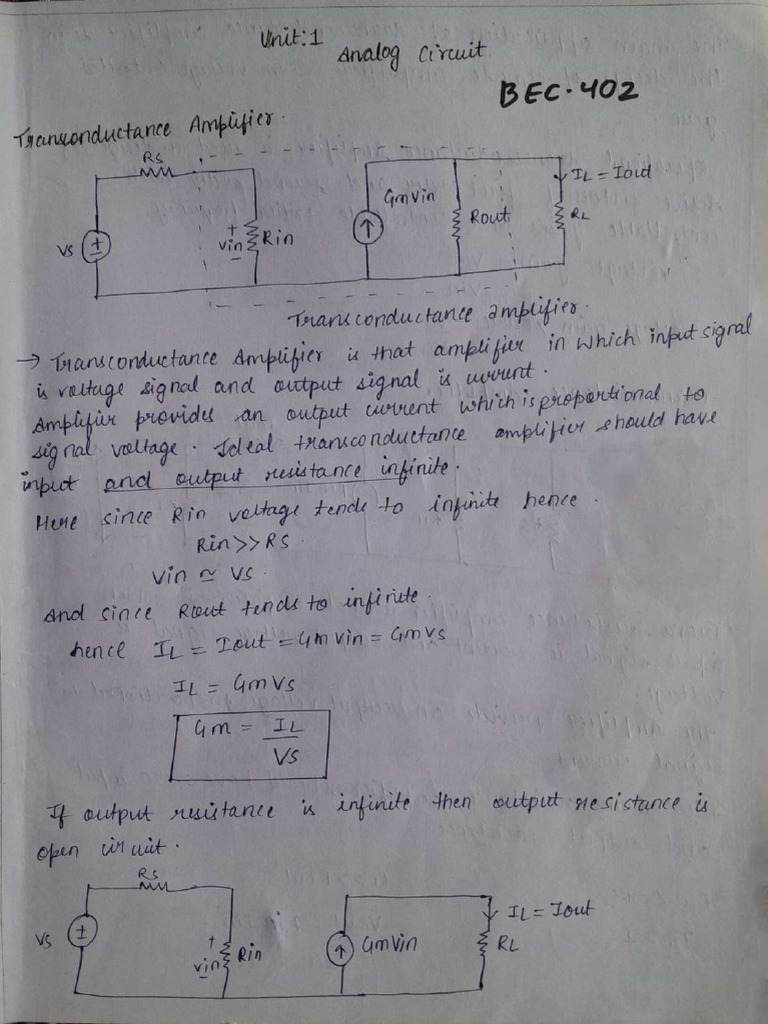 Unit:1
Analog Circuit
BEC-402
Transconductance Amplifier.
Rs
GmVin
IL = Iout
Vs
+
Vin
-
Rin
Rout
RL
Transconductance amplifier.
→ Transconductance Amplifier is that amplifier in which input signal
is voltage signal and output signal is current.
Amplifier provides an output current which is proportional to
signal voltage. Ideal transconductance amplifier should have
input and output resistance infinite.
Here since Rin voltage tends to infinite hence.
Rin>>Rs.
Vin ≃ Vs.
And since Rout tends to infinite.
hence IL = Iout = GmVin = GmVs
IL = GmVs
Gm = IL
Vs
If output resistance is infinite then output resistance is
open circuit.
Rs
IL = Iout
Vs
+
Vin
-
Rin
GmVin
RL